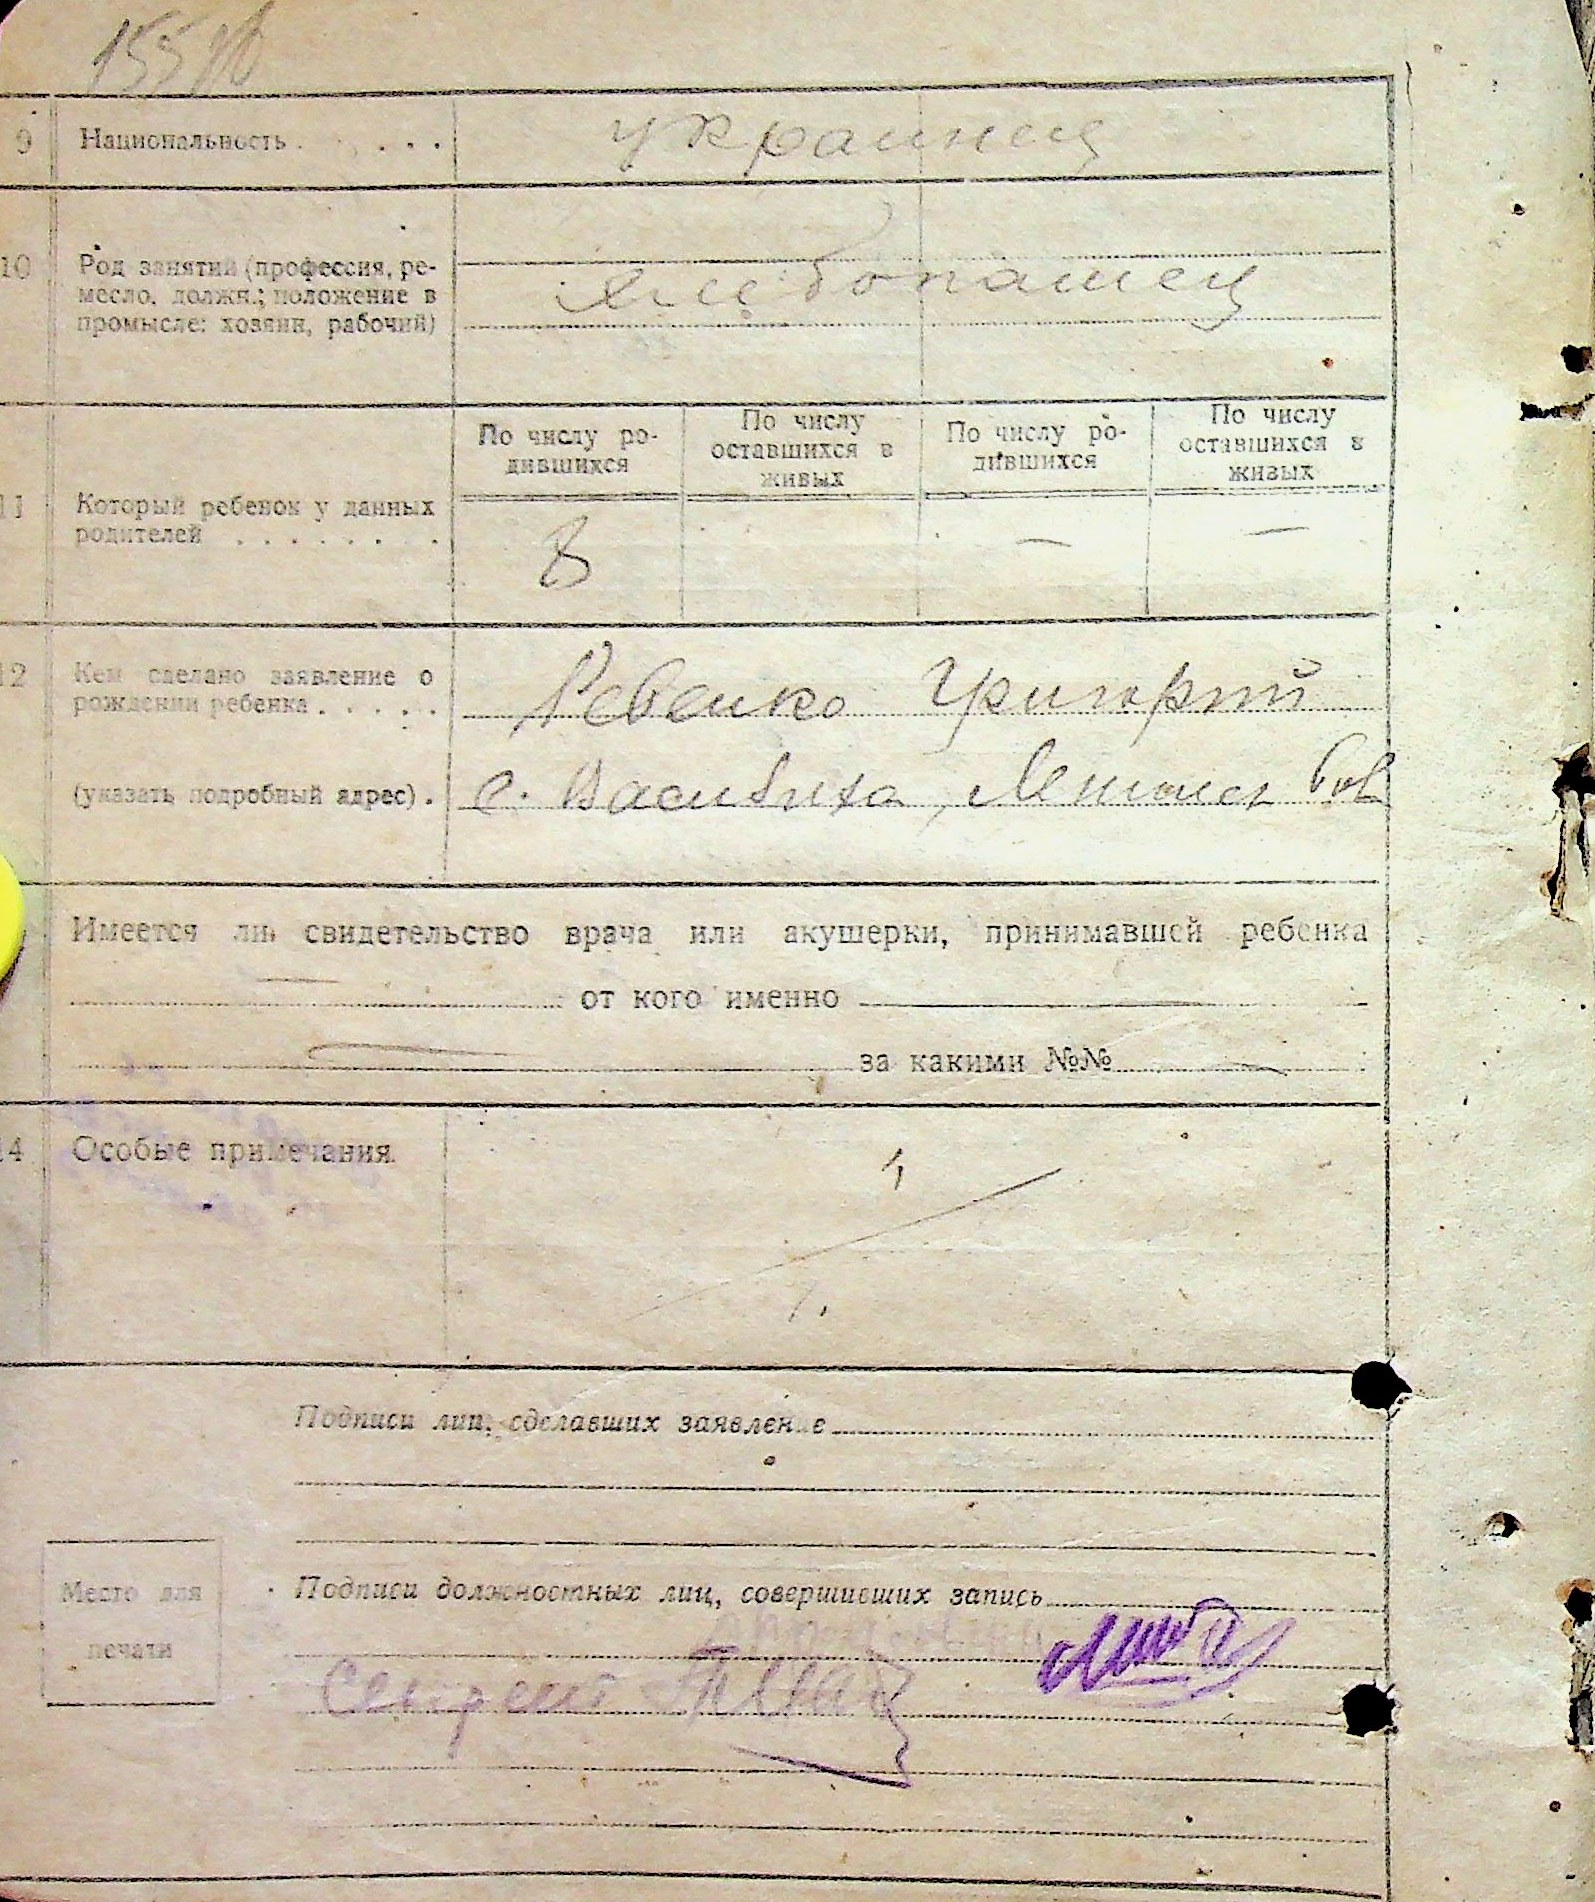 9 Национальность . . . . украинец
10 Род занятий (профессия, ре-
месло, должн.; положение в
промысле: хозяин, рабочий)
хлебопашец
По числу ро-
дившихся
По числу
оставшихся в
живых
По числу ро-
дившихся
По числу
оставшихся в
живых
11 Который ребенок у данных
родителей . . . . . . . .
8 — —
12 Кем сделано заявление о
рождении ребенка . . . . .
Ревенко Григорий
(указать подробный адрес) .
с.
Имеется ли свидетельство врача или акушерки, принимавшей ребенка
— от кого именно —
— за какими №№ —
14 Особые примечания
Подписи лиц, сделавших заявление
Подписи должностных лиц, совершивших запись
Место для
печати